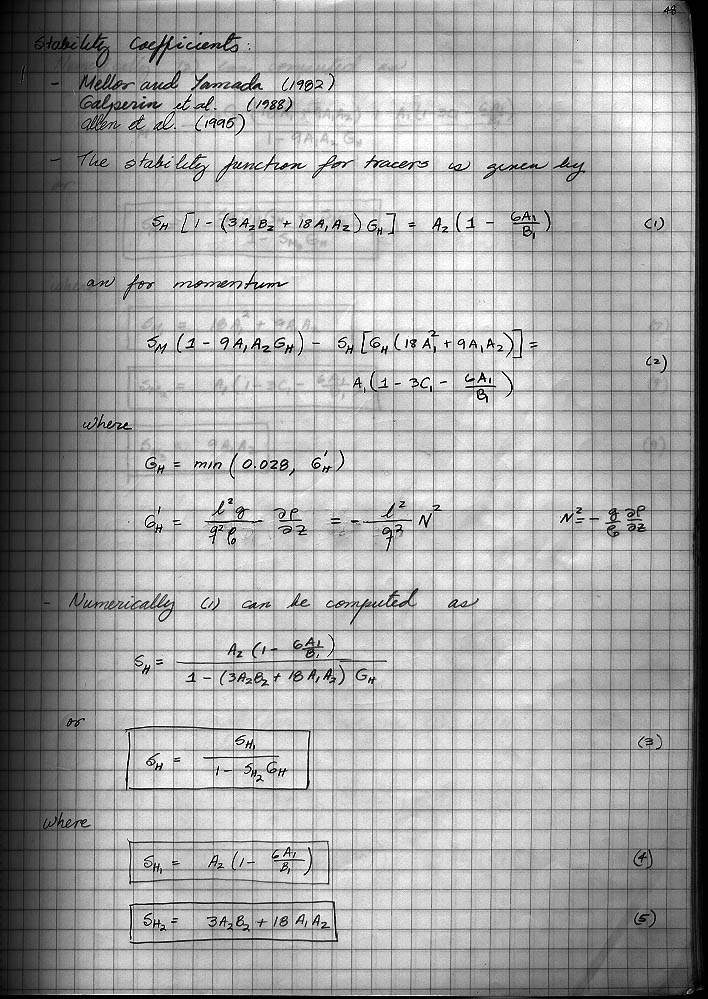 48
Stability Coefficients:
- Mellor and Yamada (1982)
Galperin et al. (1988)
Allen et al. (1995)
- The stability function for tracers is given by
S_H [1 - (3A_2B_2 + 18A_1A_2) G_H] = A_2 (1 - 6A_1/B_1) (1)
an for momentum
S_M (1 - 9A_1A_2G_H) - S_H [G_H (18A_1^2 + 9A_1A_2)] =
A_1 (1 - 3C_1 - 6A_1/B_1) (2)
where
G_H = min (0.028, G_H')
G_H' = l^2 g/q^2 ρ_0 ∂ρ/∂z = - l^2/q^2 N^2 N^2 = - g/ρ_0 ∂ρ/∂z
- Numerically (1) can be computed as
S_H = A_2 (1 - 6A_1/B_1) / 1 - (3A_2B_2 + 18A_1A_2) G_H
or
S_H = S_H1 / 1 - S_H2 G_H (3)
where
S_H1 = A_2 (1 - 6A_1/B_1) (4)
S_H2 = 3A_2B_2 + 18A_1A_2 (5)